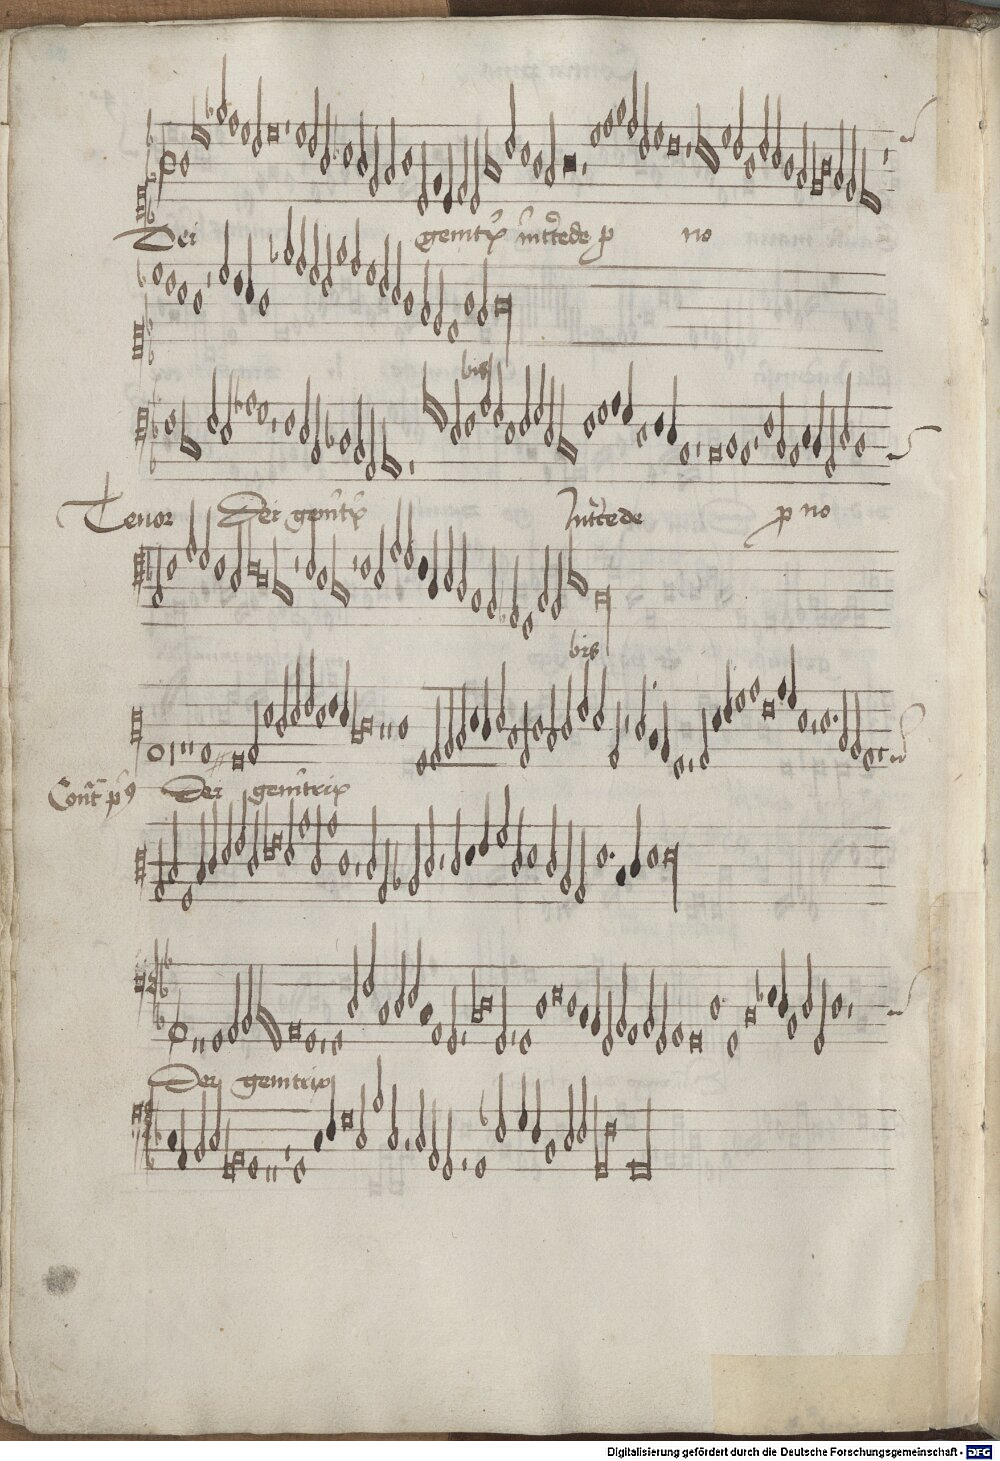 Dei genitx̄ int̄cede p no
bis
Tenor Dei genitx̄ Int̄cede p no
bis
Cont̄ p⁹ Dei genitrix
Dei genitrix
Digitalisierung gefördert durch die Deutsche Forschungsgemeinschaft - DFG